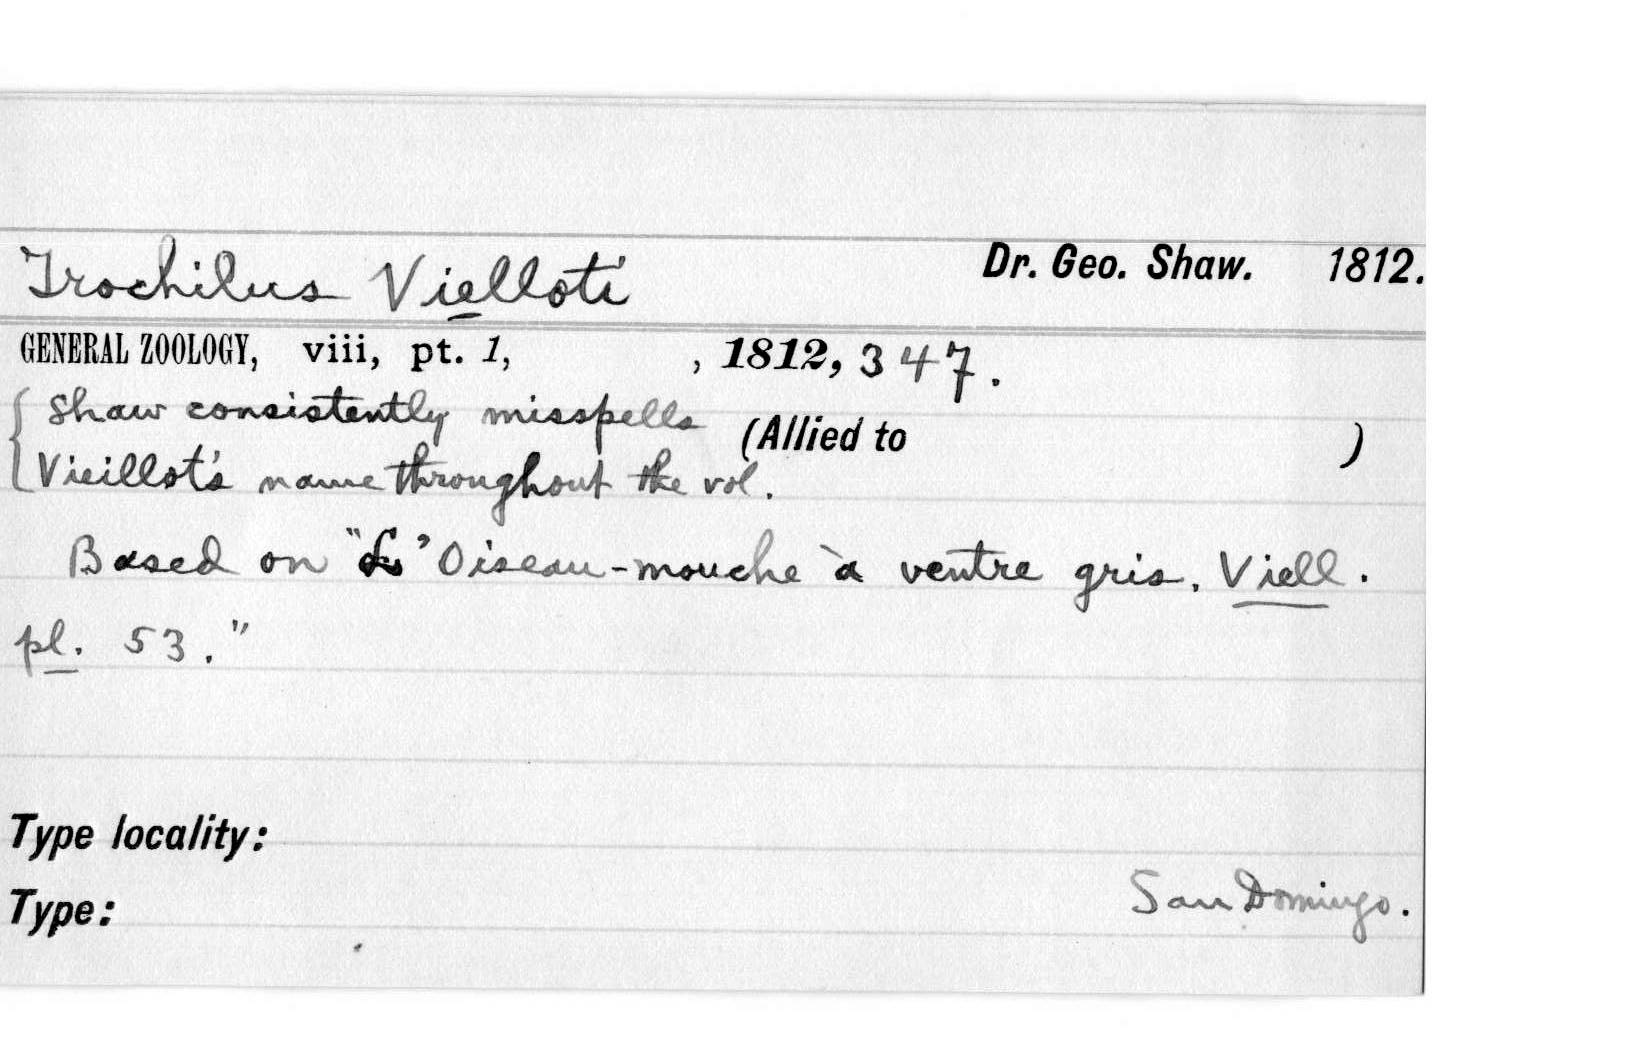 Trochilus Vielloti Dr. Geo. Shaw. 1812.
GENERAL ZOOLOGY, viii, pt. 1, , 1812, 347.
Shaw consistently misspells (Allied to )
Vieillot's name throughout the vol.
Based on "L'Oiseau-mouche à ventre gris. Viell.
pl. 53."
Type locality:
San Domingo.
Type: